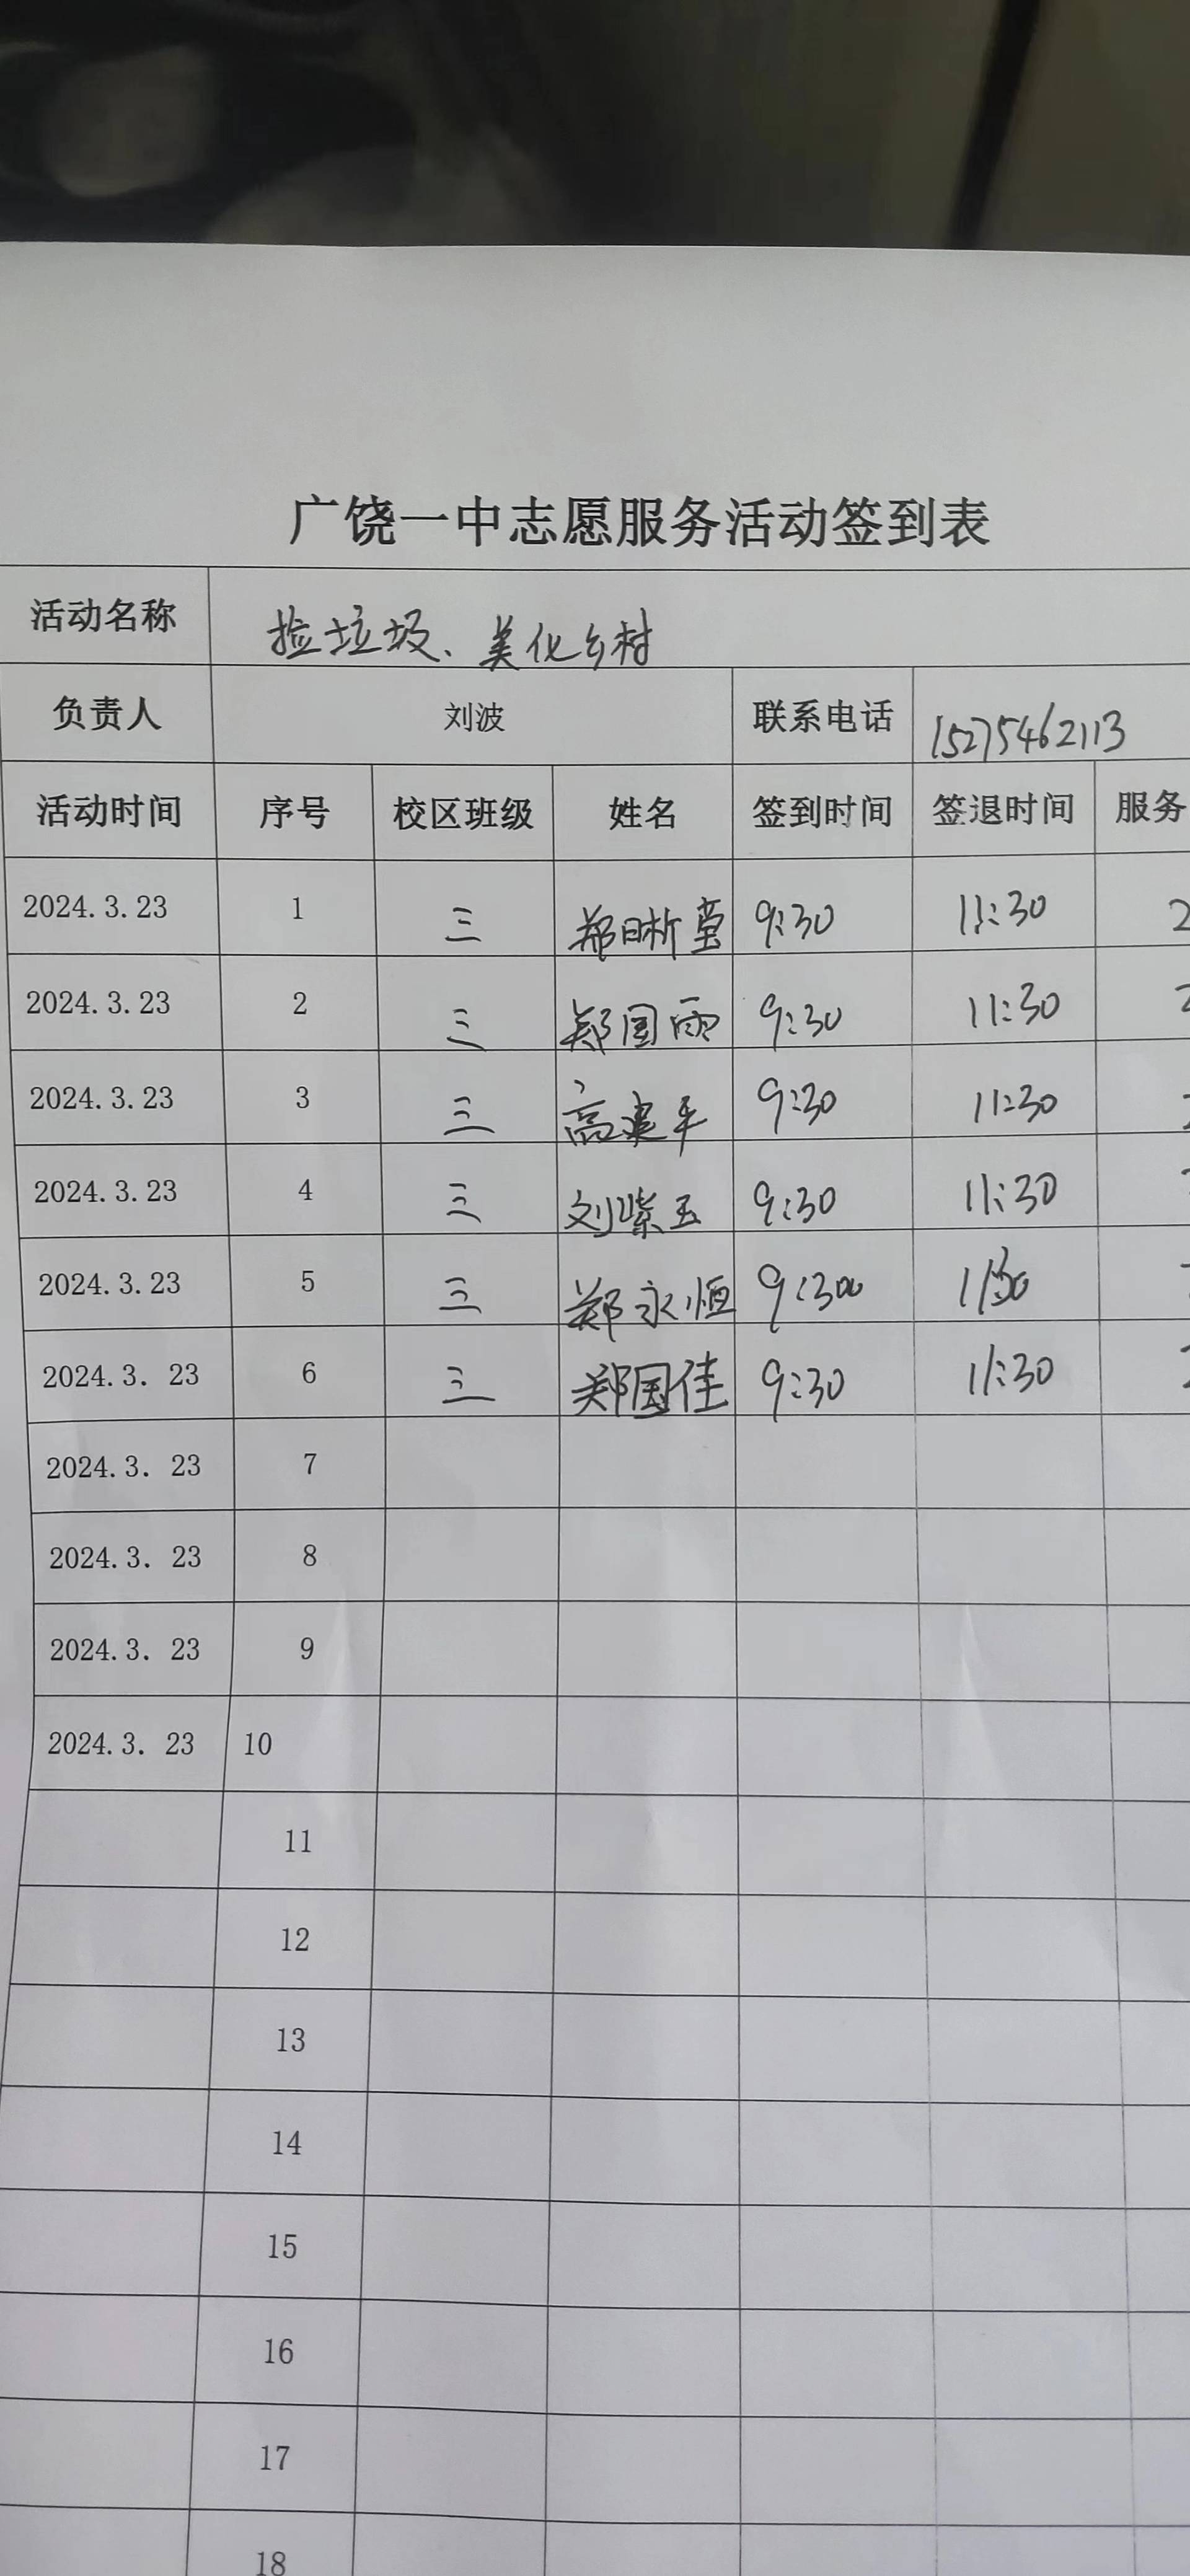 广饶一中志愿服务活动签到表
活动名称 捡垃圾、美化乡村
负责人 刘波 联系电话 15275462113
活动时间 序号 校区班级 姓名 签到时间 签退时间 服务
2024.3.23 1 三 郑晰 9:30 11:30 2
2024.3.23 2 三 郑国雨 9:30 11:30
2024.3.23 3 三 高建平 9:30 11:30
2024.3.23 4 三 刘紫玉 9:30 11:30
2024.3.23 5 三 郑永恒 9:30
2024.3.23 6 三 郑国佳 9:30 11:30
2024.3.23 7
2024.3.23 8
2024.3.23 9
2024.3.23 10
11
12
13
14
15
16
17
18